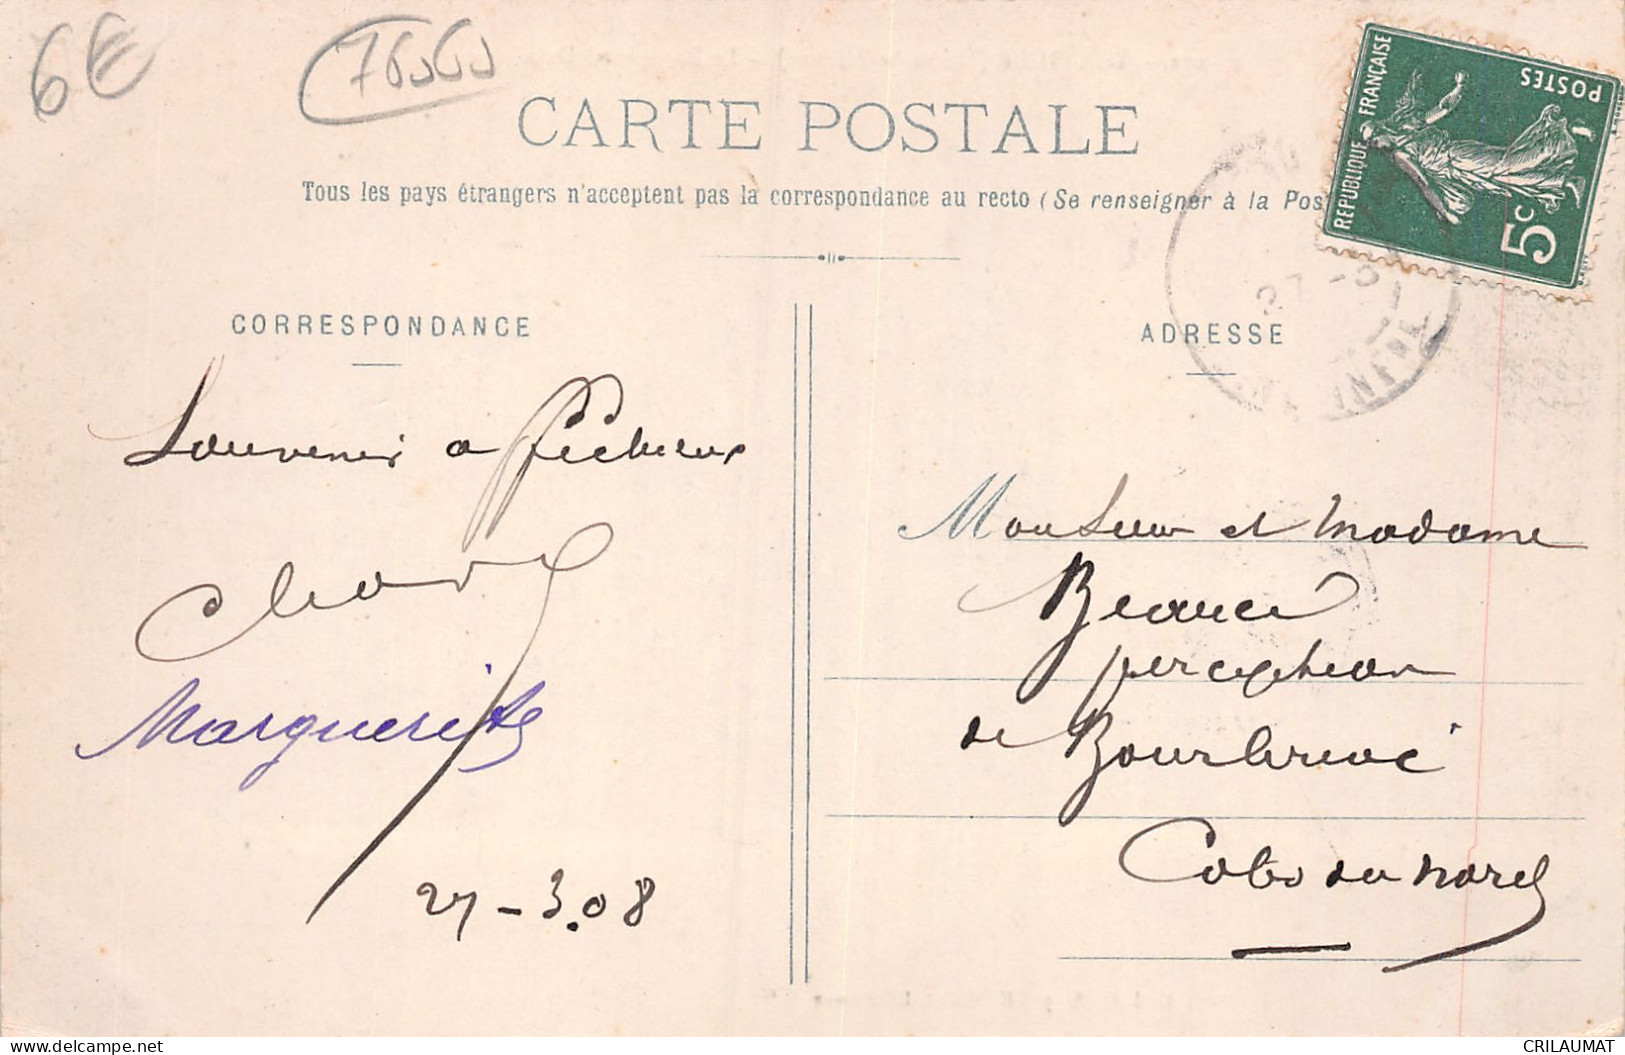 6€
76000
CARTE POSTALE
Tous les pays étrangers n'acceptent pas la correspondance au recto (Se renseigner à la Pos
REPUBLIQUE FRANÇAISE
POSTES
5c
27 -3
CORRESPONDANCE
Souvenir affectueux
Marguerite
27-3.08
ADRESSE
Monsieur et Madame
perception
de Bourbriac
Cotes du nord
delcampe.net
CRILAUMAT